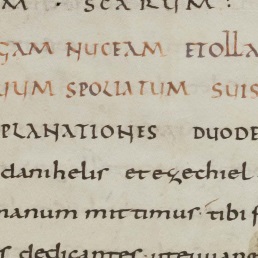 M · SCARUM ·
GAM NUCEAM ET olla
RIUM SPOLIATUM SUIS
PLANATIONES DUODE
danihelis et ezechiel
manum mittimus tibi f
s dedicantes